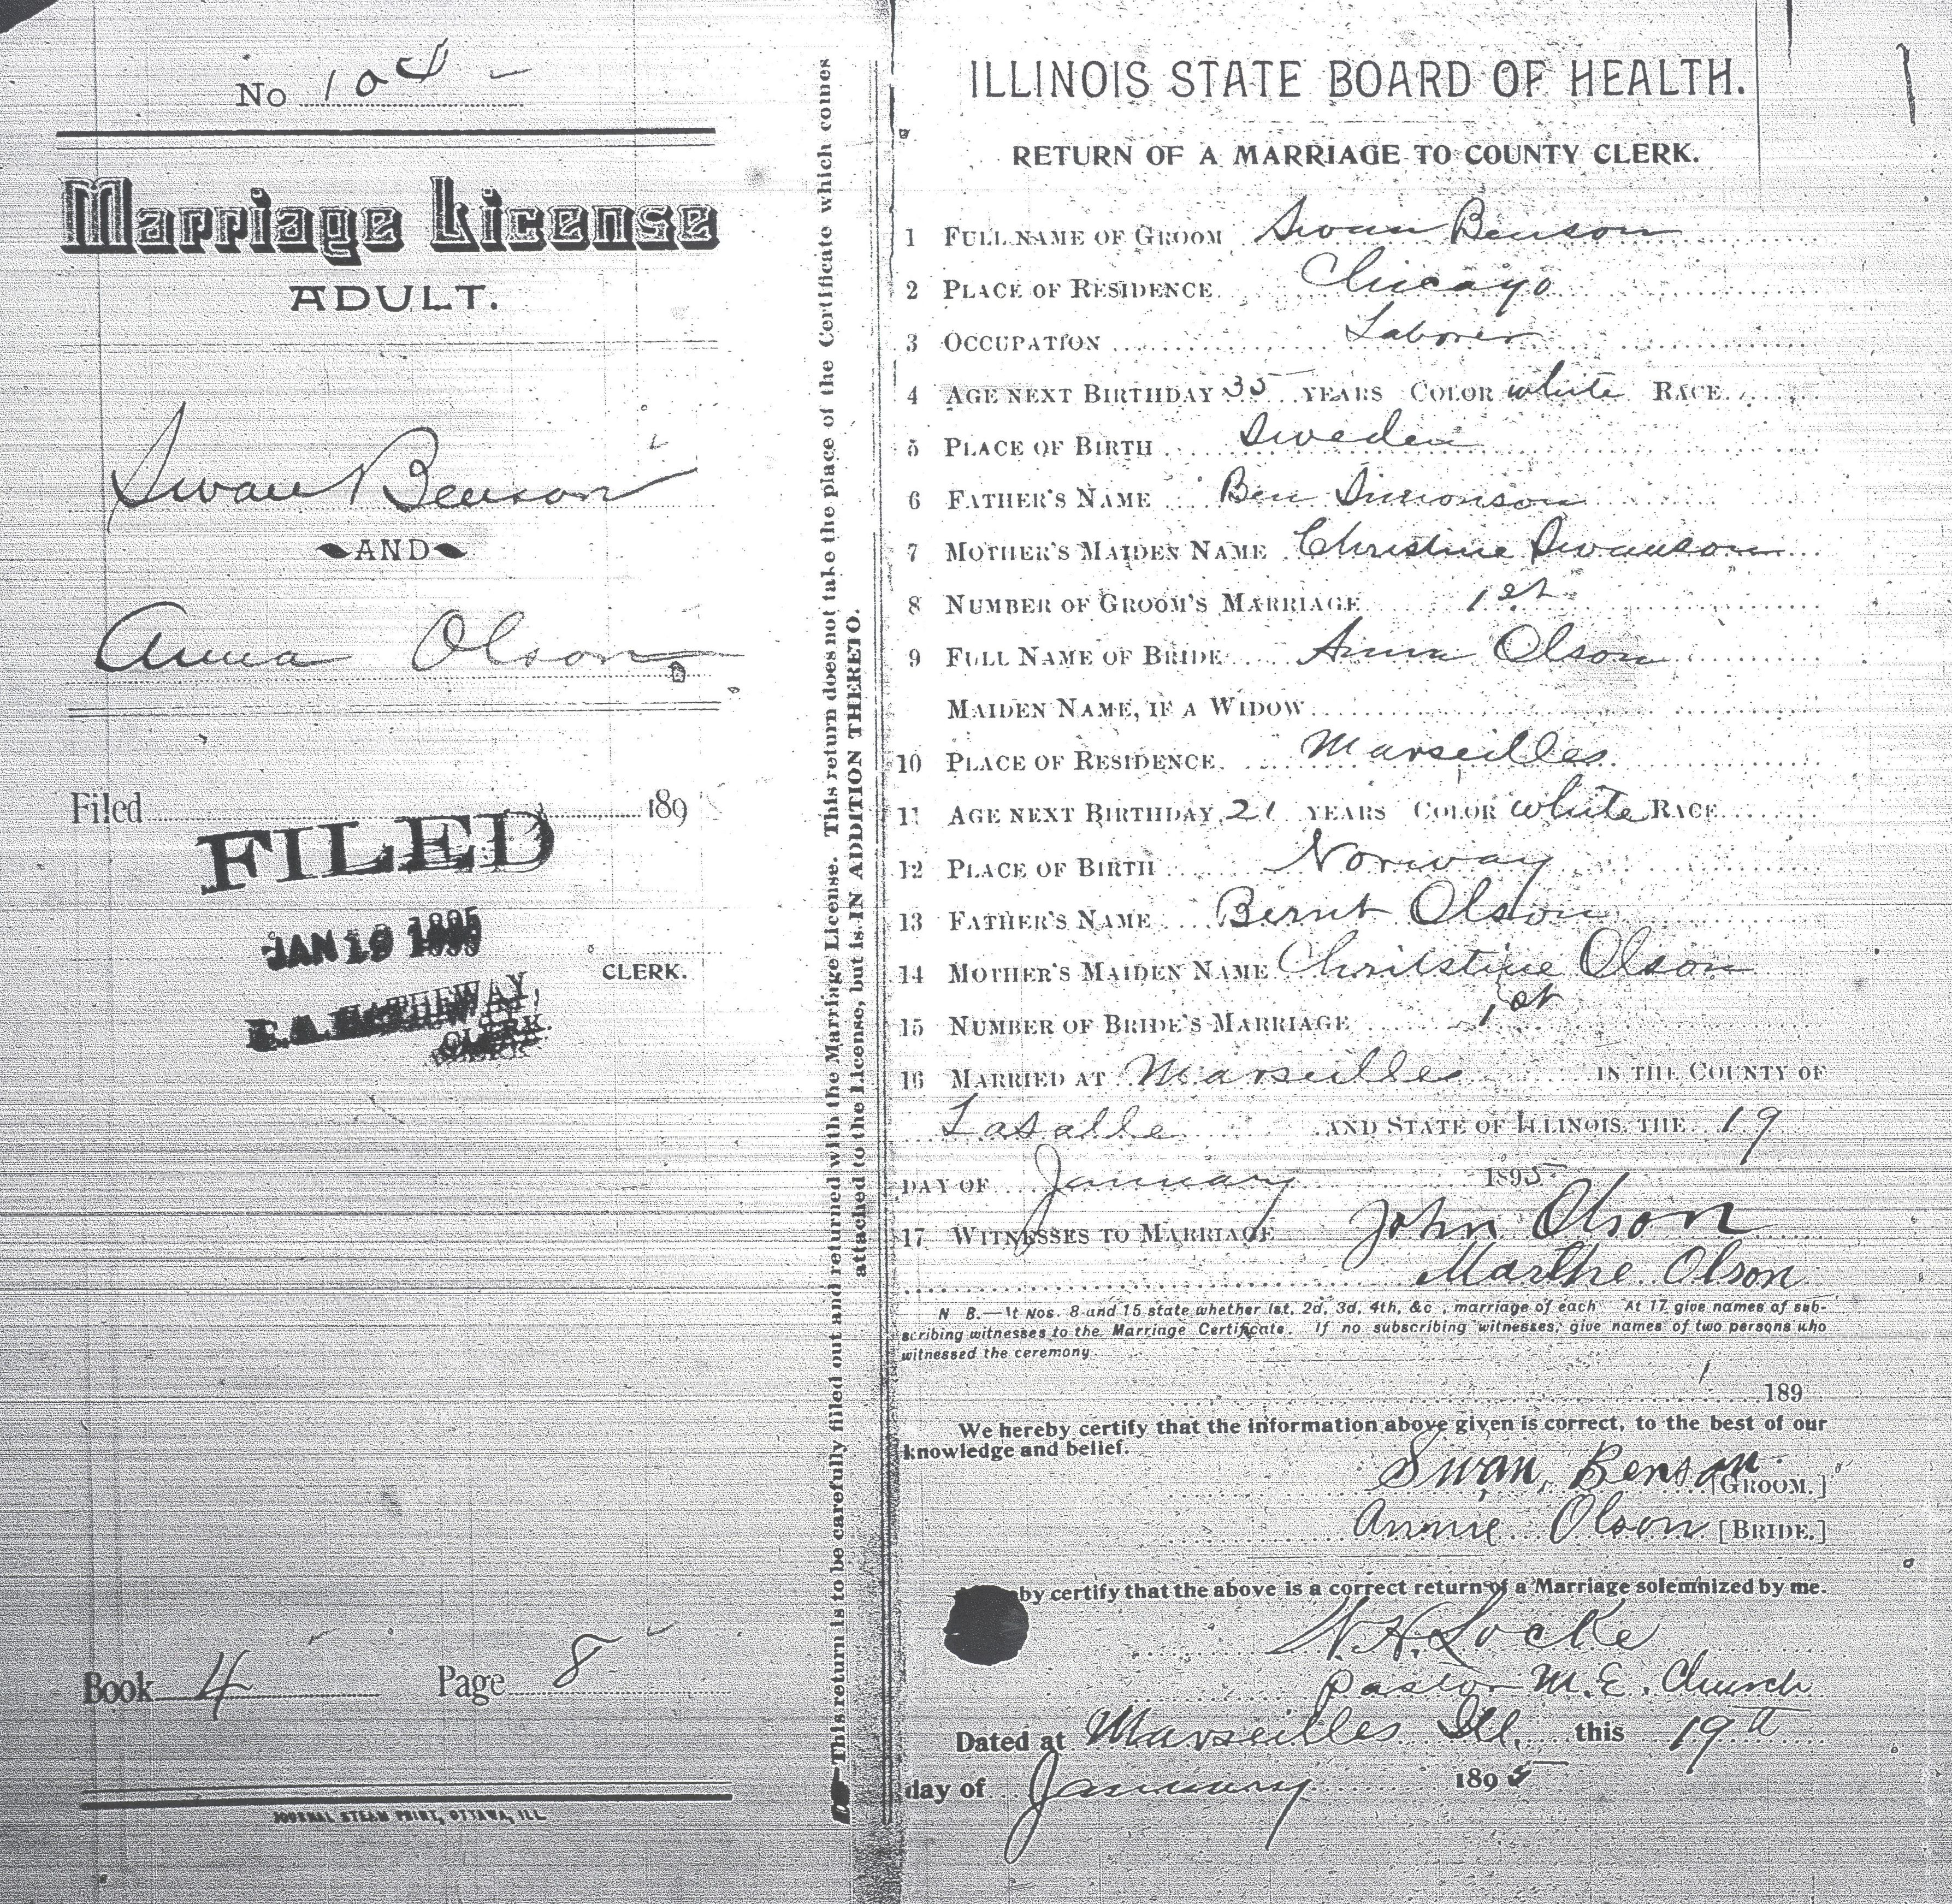 No
Marriage License
ADULT.
Swan Benson
AND
Anna Olson
Filed 189
FILED
JAN 19 1895
CLERK.
CLERK.
Book 4 Page 8
JOURNAL STEAM PRINT, OTTAWA, ILL
This return is to be carefully filled out and returned with the Marriage License. This return does not take the place of the Certificate which comes
attached to the License, but is IN ADDITION THERETO.
ILLINOIS STATE BOARD OF HEALTH.
RETURN OF A MARRIAGE TO COUNTY CLERK.
1 FULL NAME OF GROOM Swan Benson
2 PLACE OF RESIDENCE Chicago
3 OCCUPATION Laborer
4 AGE NEXT BIRTHDAY 35 YEARS COLOR white RACE
5 PLACE OF BIRTH Sweden
6 FATHER'S NAME Ben Simonson
7 MOTHER'S MAIDEN NAME Christine Swanson
8 NUMBER OF GROOM'S MARRIAGE 1st
9 FULL NAME OF BRIDE Anna Olson
MAIDEN NAME, IF A WIDOW
10 PLACE OF RESIDENCE Marseilles
11 AGE NEXT BIRTHDAY 21 YEARS COLOR white RACE
12 PLACE OF BIRTH Norway
13 FATHER'S NAME Bernt Olson
14 MOTHER'S MAIDEN NAME Christine Olson
15 NUMBER OF BRIDE'S MARRIAGE 1st
16 MARRIED AT Marseilles IN THE COUNTY OF
Lasalle AND STATE OF ILLINOIS, THE 19
DAY OF January 1895
17 WITNESSES TO MARRIAGE John Olson
Marthe Olson
N B.—At Nos. 8 and 15 state whether 1st, 2d, 3d, 4th, &c, marriage of each At 17 give names of sub-
scribing witnesses to the Marriage Certificate. If no subscribing witnesses, give names of two persons who
witnessed the ceremony
189
We hereby certify that the information above given is correct, to the best of our
knowledge and belief.
Swan Benson [GROOM.]
Annie Olson [BRIDE.]
by certify that the above is a correct return of a Marriage solemnized by me.
N.H. Locke
Pastor M.E. Church
Dated at Marseilles Ill. this 19th
day of January 1895